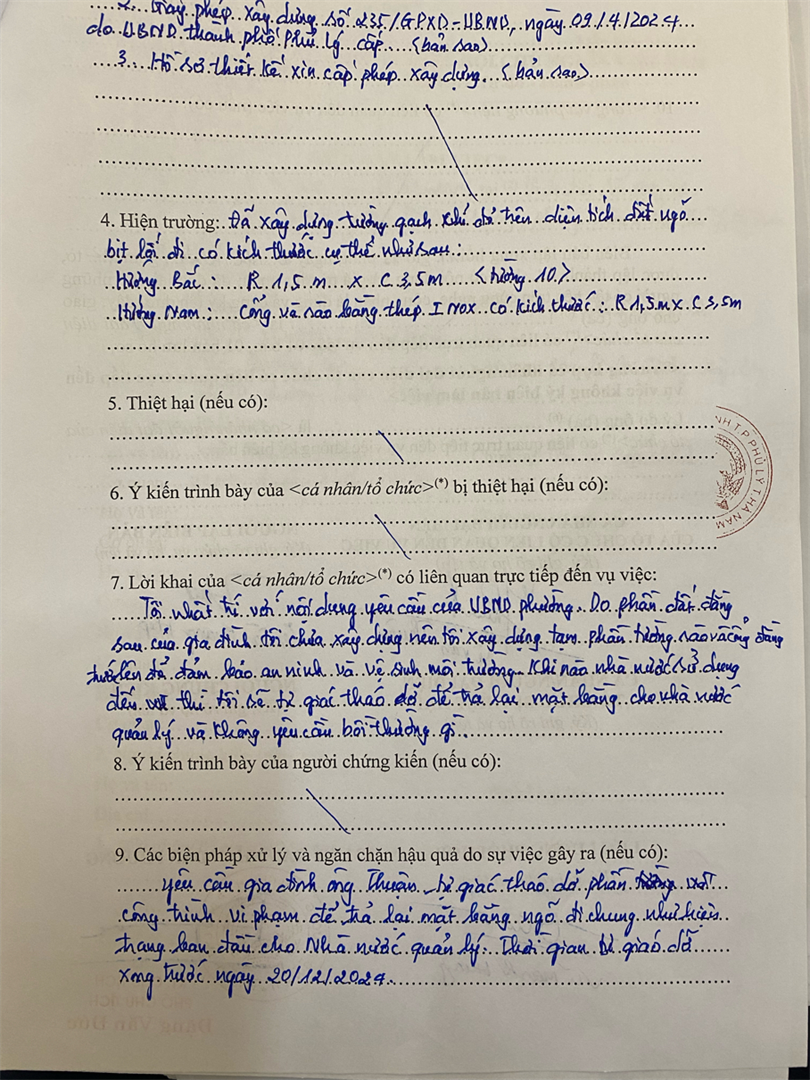 2. Giấy phép xây dựng số 235/GPXD-UBND, ngày 09/4/2024
do UBND thành phố Phủ Lý cấp (bản sao)
3. Hồ sơ thiết kế xin cấp phép xây dựng (bản sao)
4. Hiện trường: Đã xây dựng tường gạch chỉ đỏ trên diện tích đất ngõ
bịt lối đi có kích thước cụ thể như sau:
Hướng Bắc: R 1,5 m x C 3,5m <tường 10>
Hướng Nam: Cổng và rào bằng thép INox có kích thước: R 1,5m x C 3,5m
5. Thiệt hại (nếu có):
6. Ý kiến trình bày của <cá nhân/tổ chức>(*) bị thiệt hại (nếu có):
7. Lời khai của <cá nhân/tổ chức>(*) có liên quan trực tiếp đến vụ việc:
Tôi nhất trí với nội dung yêu cầu của UBND phường. Do phần đất đằng
sau của gia đình tôi chưa xây dựng nên tôi xây dựng tạm phần tường rào và cổng đằng
trước lên để đảm bảo an ninh và vệ sinh môi trường. Khi nào nhà nước sử dụng
đến thì tôi sẽ tự giác tháo dỡ để trả lại mặt bằng cho nhà nước
quản lý và không yêu cầu bồi thường gì.
8. Ý kiến trình bày của người chứng kiến (nếu có):
9. Các biện pháp xử lý và ngăn chặn hậu quả do sự việc gây ra (nếu có):
yêu cầu gia đình ông Thuận tự giác tháo dỡ phần
công trình vi phạm để trả lại mặt bằng ngõ đi chung như hiện
trạng ban đầu cho Nhà nước quản lý. Thời gian tự giác dỡ
xong trước ngày 20/12/2024.
T.P PHỦ LÝ T.HÀ NAM
Đặng Văn Đue